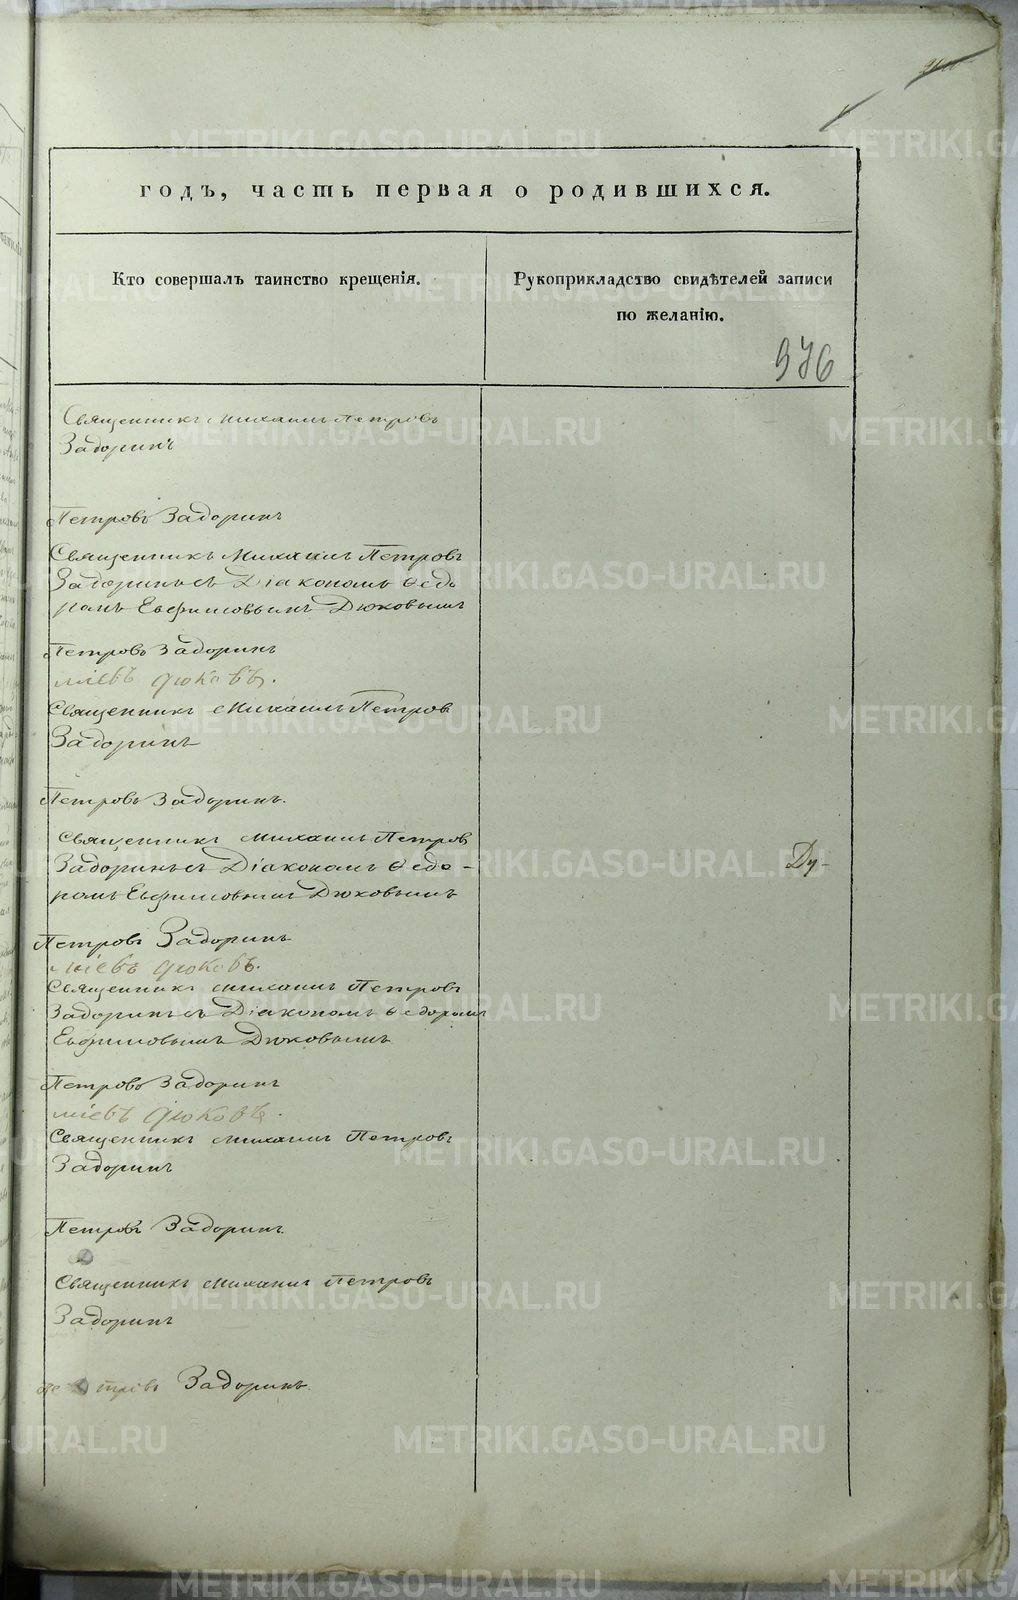 годъ, часть первая о родившихся.
Кто совершалъ таинство крещенія.
Рукоприкладство свидѣтелей записи
по желанію.
976
Священникъ Михаилъ Петровъ
Задоринъ
Петровъ Задоринъ
Священникъ Михаилъ Петровъ
Задоринъ съ Діакономъ Ѳедо
ромъ Евфимовымъ Дюковымъ
Петровъ Задоринъ
міевъ Дюковъ.
Священникъ Михаилъ Петров
Задоринъ
Петровъ Задоринъ.
Священникъ Михаилъ Петров
Задоринъ съ Діакономъ Ѳедо-
ромъ Евфимовымъ Дюковымъ
Ду-
Петровъ Задоринъ
міевъ Дюковъ.
Священникъ Михаилъ Петровъ
Задоринъ съ Діакономъ Ѳедоромъ
Евфимовымъ Дюковымъ
Петровъ Задоринъ
міевъ Дюковъ.
Священникъ Михаилъ Петровъ
Задоринъ
Петровъ Задоринъ.
Священникъ Михаилъ Петровъ
Задоринъ
Петровъ Задоринъ.
METRIKI.GASO-URAL.RU